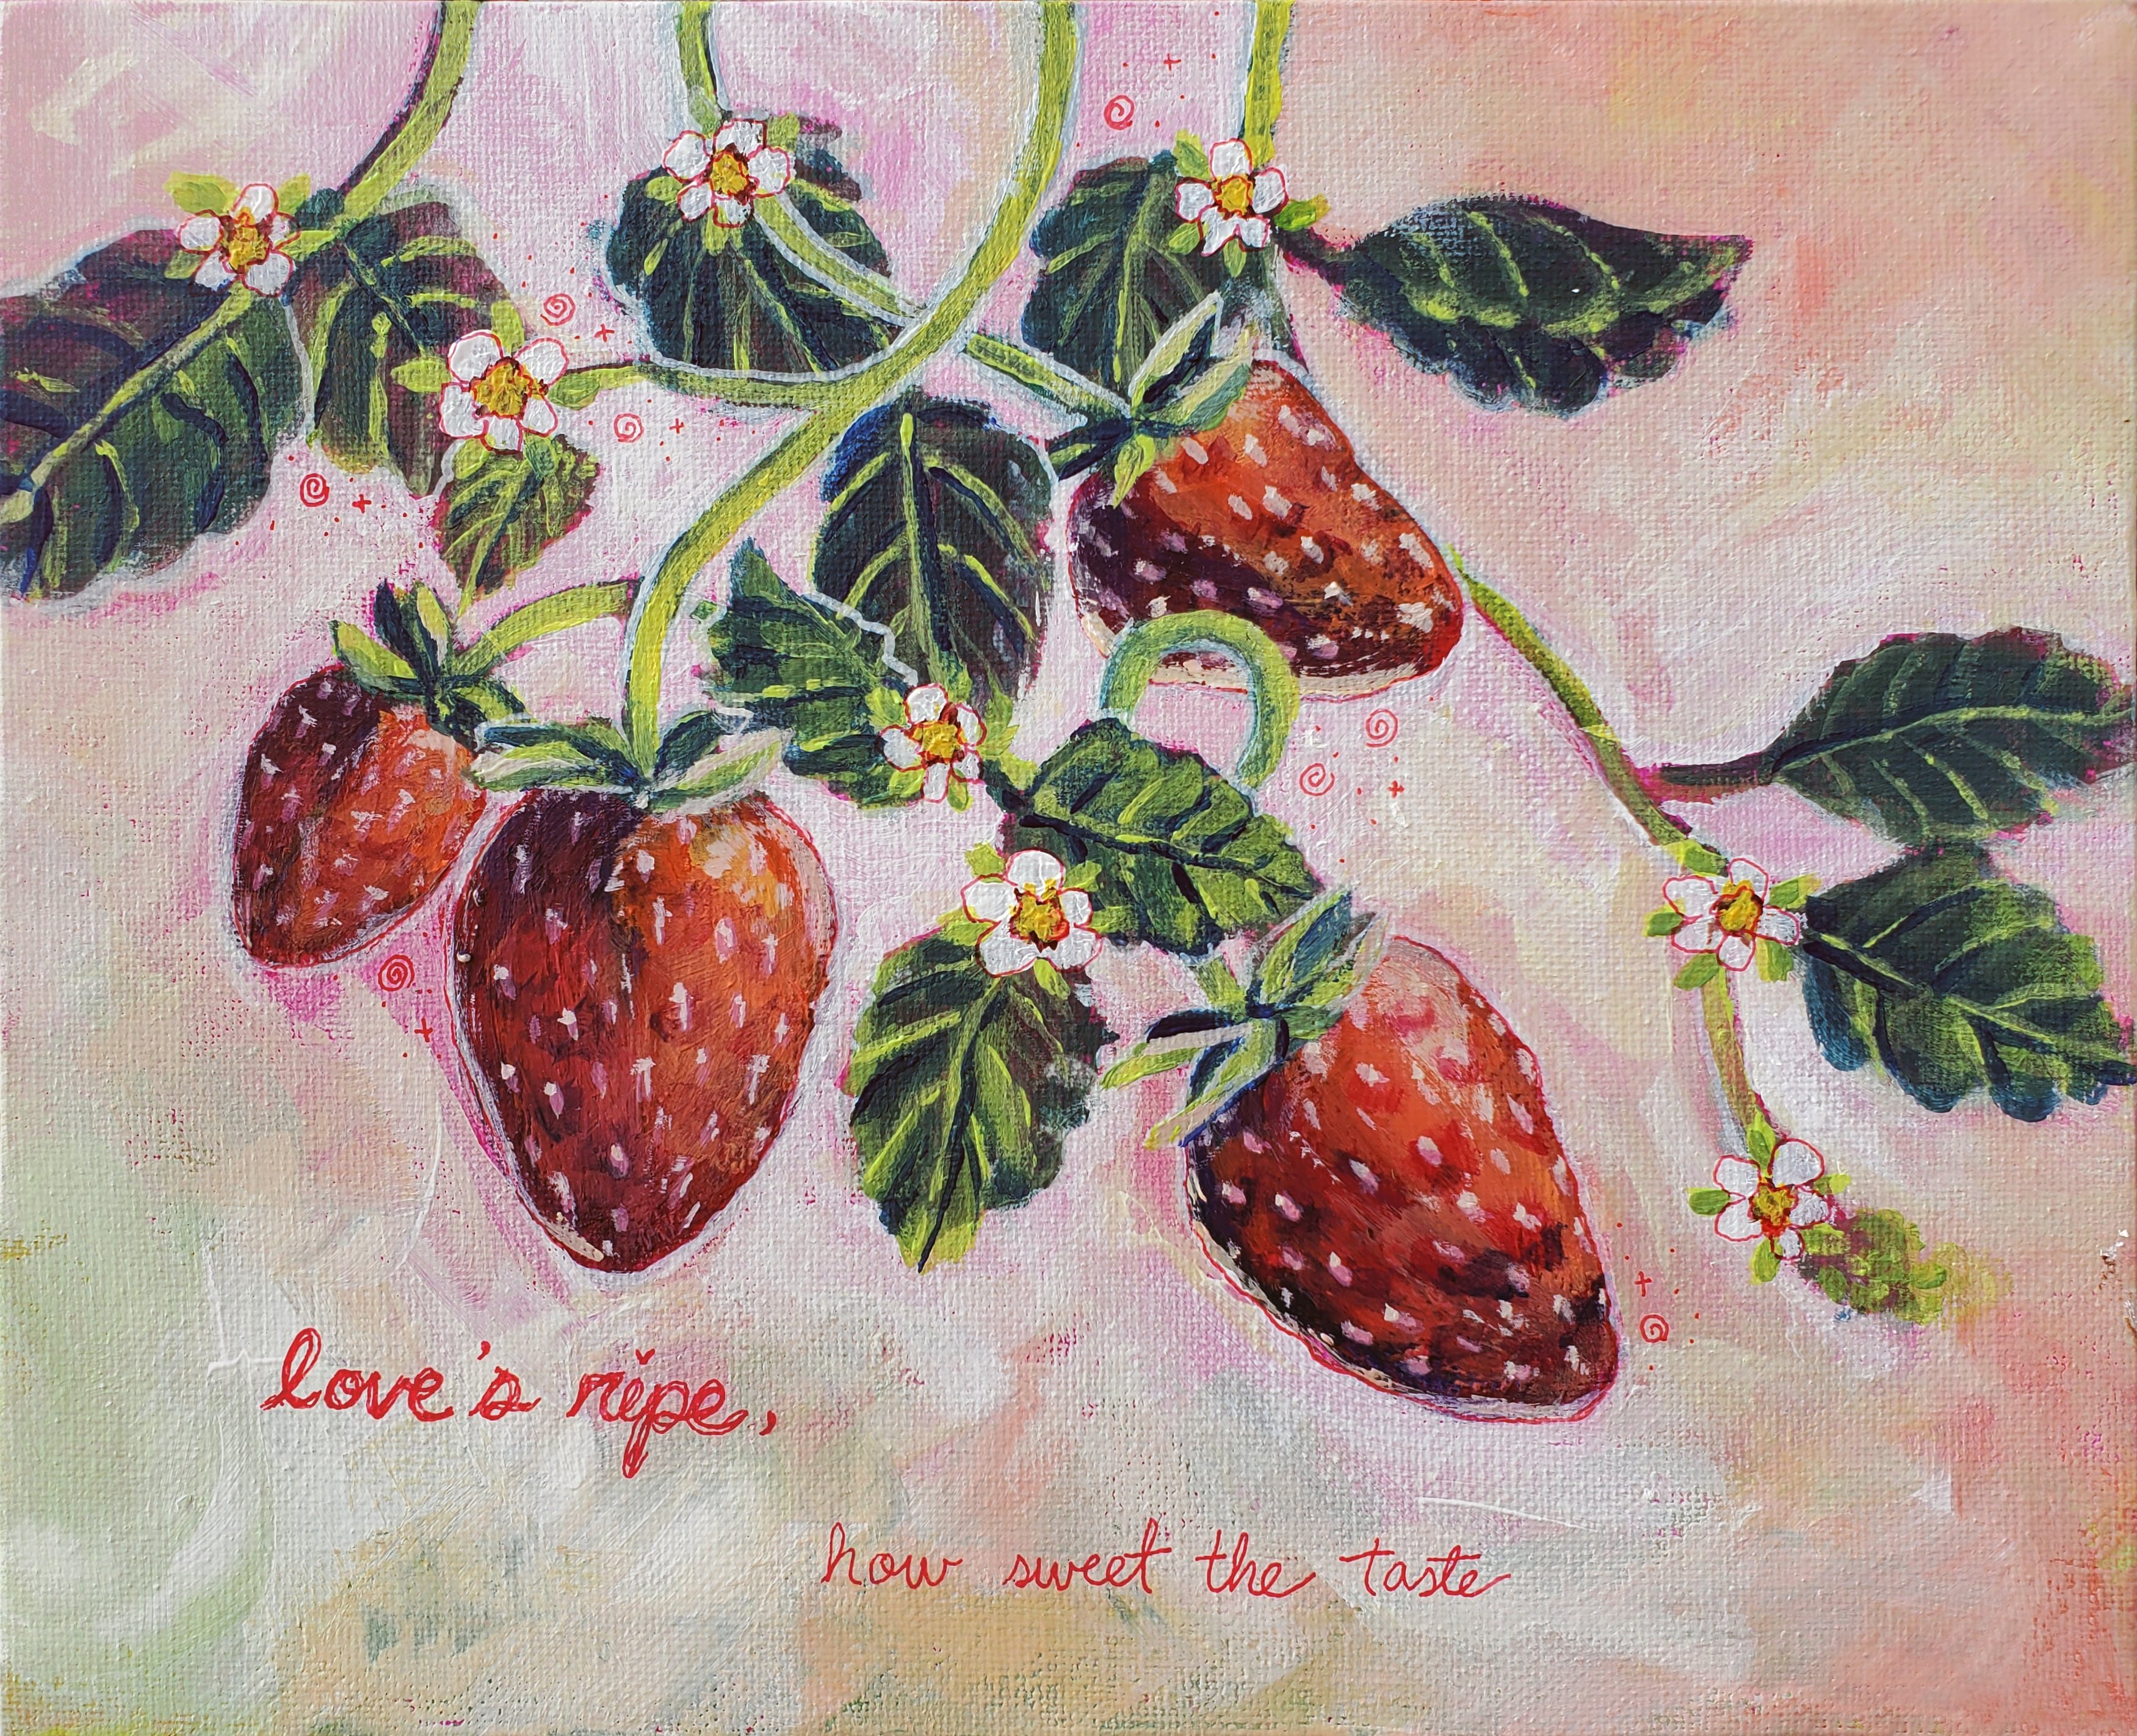 love's ripe,
how sweet the taste